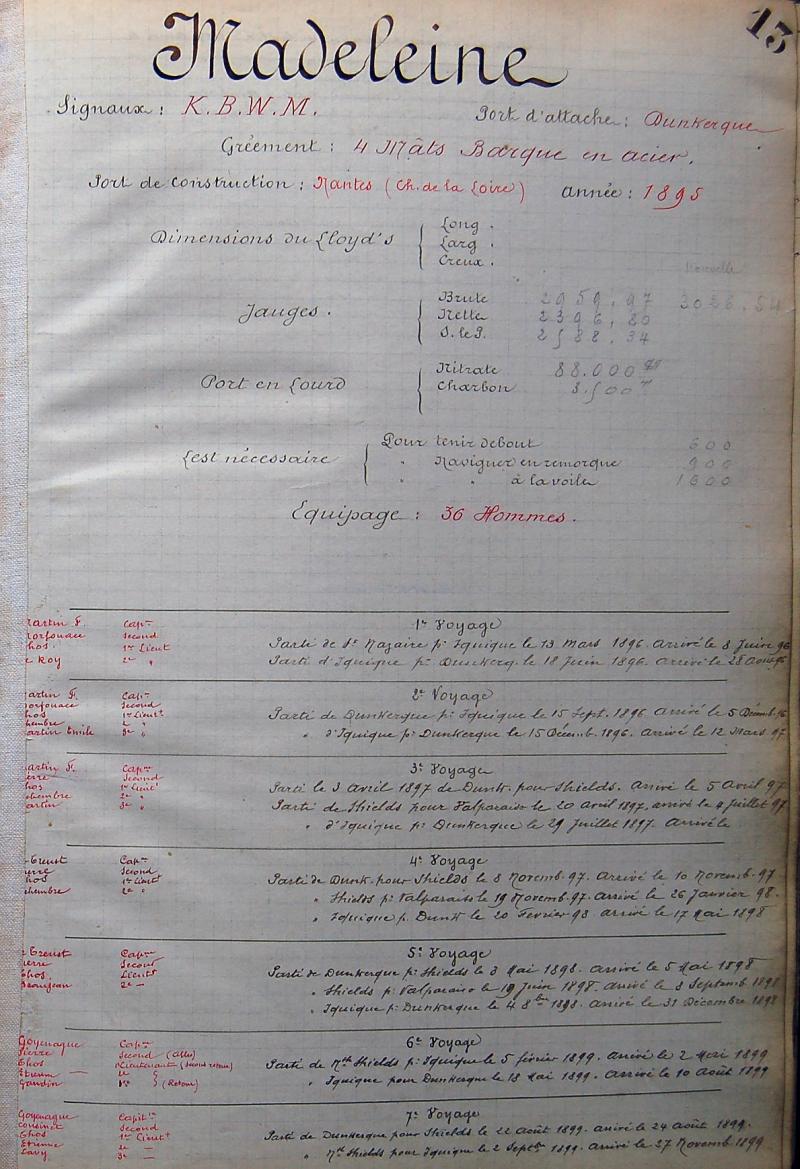 13
Madeleine
Signaux : K.B.W.M. Port d'attache : Dunkerque
Gréement : 4 Mâts Barque en acier.
Port de construction : Nantes (Ch. de la Loire) année : 1895
Dimensions du Lloyd's
Long .
Larg .
Creux .
Nouvelle
Jauges .
Brute 2959,97
Nette 2396,80
S.le P. 2588,34
Port en Lourd
Nitrate 88.000
Charbon 3.500
Lest nécessaire
Pour tenir debout 600
" Naviguer en remorque 900
" " à la voile
Equipage : 36 Hommes .
1er Voyage
artin F. Capne
Second
hos. 1er Lieut Parti de St Nazaire pr Iquique le 13 Mars 1896. Arrivé le 8 Juin 96
Roy 2e " Parti d'Iquique pr Dunkerq. le 18 Juin 1896. Arrivé le 28 Août 96
2e Voyage
artin F. Capne
Second
hos 1er Lieut Parti de Dunkerque pr Iquique le 15 Sept. 1896 Arrivé le 5 Décemb. 96
hembre 2e "
artin Emile 3e " " d'Iquique pr Dunkerque le 15 Décemb. 1896. Arrivé le 12 Mars 97
3e Voyage
artin F. Capne
ierre Second
hos 1er Lieut Parti le 3 Avril 1897 de Dunk. pour Shields. Arrivé le 5 Avril 97
chembre 2e "
artin 3e " Parti de Shields pour Valparaiso le 20 Avril 1897, arrivé le 4 Juillet 97
" d'Iquique pr Dunkerque le 29 Juillet 1897. Arrivé le
4e Voyage
Capne
ierre Second
hos 1er Lieut Parti de Dunk. pour Shields le 8 Novemb. 97. Arrivé le 10 Novemb. 97
chembre 2e " " Shields pr Valparaiso le 19 Novemb. 97. Arrivé le 26 Janvier 98.
" Iquique p. Dunk le 20 Fevrier 98 arrivé le 17 Mai 1898
5e Voyage
Capne
ierre Second
Ehos. Lieut Parti de Dunkerque pr Shields le 3 Mai 1898. Arrivé le 5 Mai 1898
Beaujean 2e — " Shields pr Valparaiso le 19 Juin 1898. Arrivé le 8 Septemb 1898
" Iquique pr Dunkerque le 4 8bre 1898. Arrivé le 31 Décembre 1898
6e Voyage
Goyenaque Capne
Pierre Second (Aller)
Ehos Lieutenant (Second retour) Parti de Nth Shields pr Iquique le 5 février 1899. Arrivé le 2 Mai 1899
Etienne —
Gaudin (Retour) " Iquique pour Dunkerque le 18 Mai 1899. Arrivé le 10 Août 1899
7e Voyage
Goyenaque Capitne
Cousinet Second
Ehos 1er Lieut Parti de Dunkerque pour Shields le 22 Août 1899. arrivé le 24 Août 1899.
Etienne 2e —
Lavy 3e — " Nth Shields pour Iquique le 2 Septbre 1899. Arrivé le 27 Novemb 1899